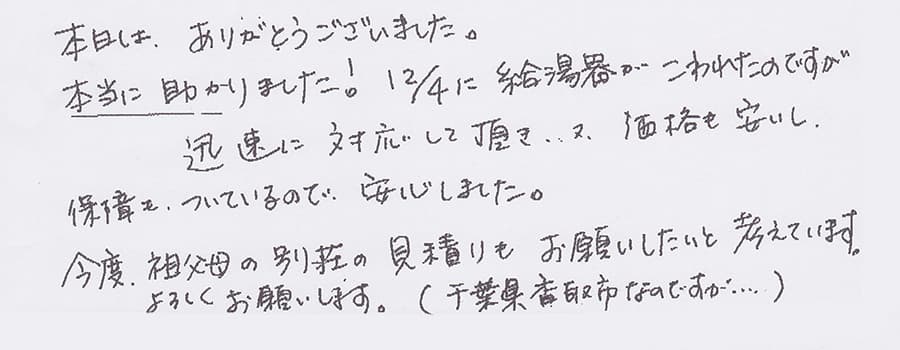 本日は、ありがとうございました。
本当に助かりました! 12/4に給湯器がこわれたのですが
迅速に対応して頂き、又、価格も安いし、
保障も、ついているので、安心しました。
今度、祖父母の別荘の見積りもお願いしたいと考えています。
よろしくお願いします。(千葉県香取市なのですが…)